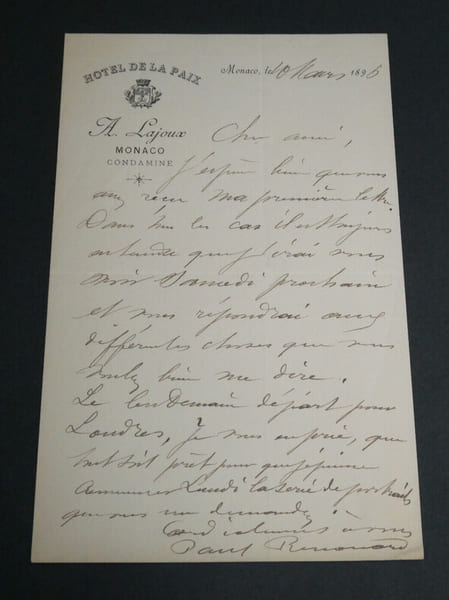 HOTEL DE LA PAIX
A. Lajoux
MONACO
CONDAMINE
Monaco, le 10 Mars 1896
Cher ami,
J'espère bien que vous
avez reçu ma première lettre.
Dans tous les cas il est toujours
entendu que j'irai vous
voir Samedi prochain
et vous répondrai aux
différentes choses que vous
voulez bien me dire.
Le lendemain départ pour
Londres, je vous en prie, que
tout soit prêt pour que je puisse
commencer Lundi la série de portraits
que vous me demandez.
Cordialement à vous
Paul Renouard